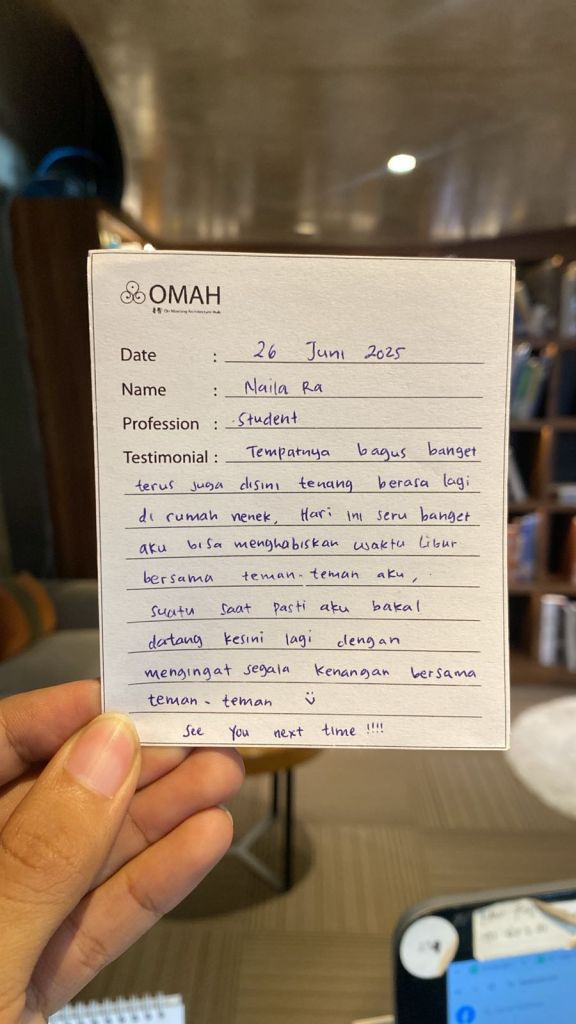 OMAH
Date : 26 Juni 2025
Name : Naila Ra
Profession : Student
Testimonial : Tempatnya bagus banget
terus juga disini tenang berasa lagi
di rumah nenek, Hari ini seru banget
aku bisa menghabiskan waktu libur
bersama teman-teman aku,
suatu saat pasti aku bakal
datang kesini lagi dengan
mengingat segala kenangan bersama
teman-teman ü
See You next time !!!!